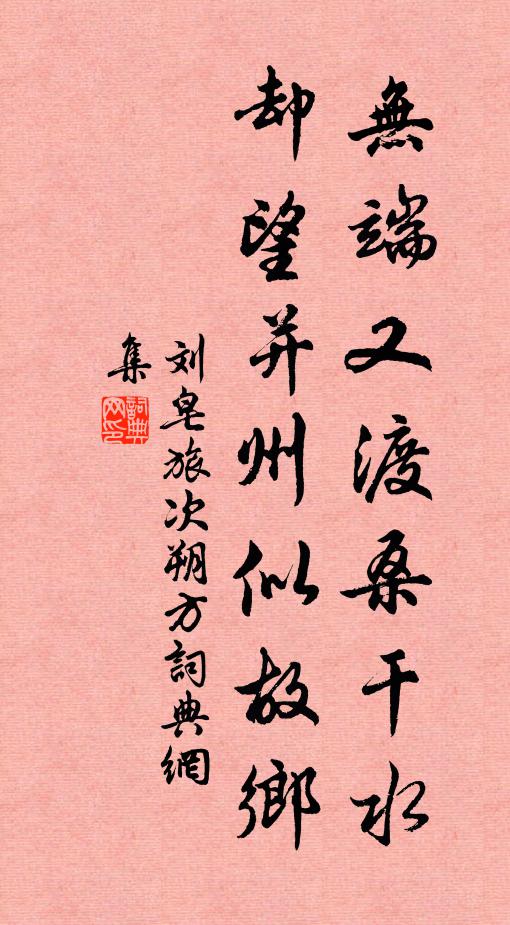 無端又渡桑干水
却望并州似故鄉
刘皂旅次朔方詞典網
集
詞典
网印